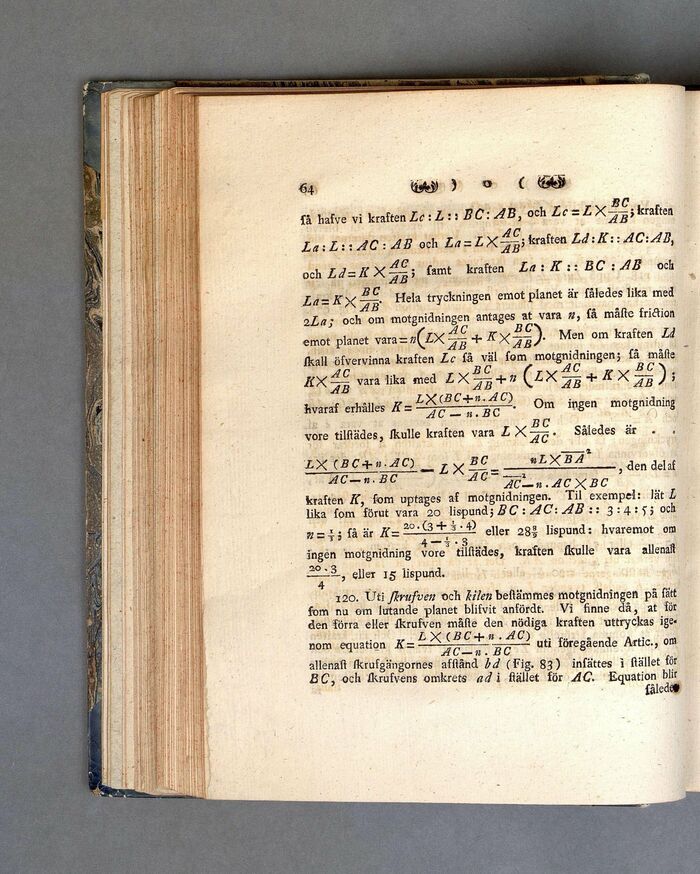 64 ) o (
ſå hafve vi kraften Lc : L :: BC : AB, och Lc = L × BC/AB; kraften
La : L :: AC : AB och La = L × AC/AB; kraften Ld : K :: AC : AB,
och Ld = K × AC/AB; ſamt kraften La : K :: BC : AB och
La = K × BC/AB. Hela tryckningen emot planet är ſåledes lika med
2La; och om motgnidningen antages at vara n, ſå måſte friction
emot planet vara = n(L × AC/AB + K × BC/AB). Men om kraften Ld
ſkall öfvervinna kraften Lc ſå väl ſom motgnidningen; ſå måſte
K × AC/AB vara lika med L × BC/AB + n (L × AC/AB + K × BC/AB);
hvaraf erhålles K = L × (BC + n. AC)/AC — n. BC. Om ingen motgnidning
vore tilſtädes, ſkulle kraften vara L × BC/AC. Således är . .
L × (BC + n. AC)/AC — n. BC — L × BC/AC = nL × BA²/AC² — n. AC × BC, den del af
kraften K, ſom uptages af motgnidningen. Til exempel: låt L
lika ſom förut vara 20 lispund; BC : AC : AB :: 3 : 4 : 5; och
n = ⅓; ſå är K = 20. (3 + ⅓. 4)/4 — ⅓. 3 eller 28 8/9 lispund: hvaremot om
ingen motgnidning vore tilſtädes, kraften ſkulle vara allenaſt
20. 3/4, eller 15 lispund.
120. Uti ſkrufven och kilen beſtämmes motgnidningen på ſätt
ſom nu om lutande planet blifvit anfördt. Vi finne då, at för
den förra eller ſkrufven måſte den nödiga kraften uttryckas ige-
nom equation K = L × (BC + n. AC)/AC — n. BC uti föregående Artic., om
allenaſt ſkrufgängornes afſtånd bd (Fig. 83) inſättes i ſtället för
BC, och ſkrufvens omkrets ad i ſtället för AC. Equation blir
ſålede